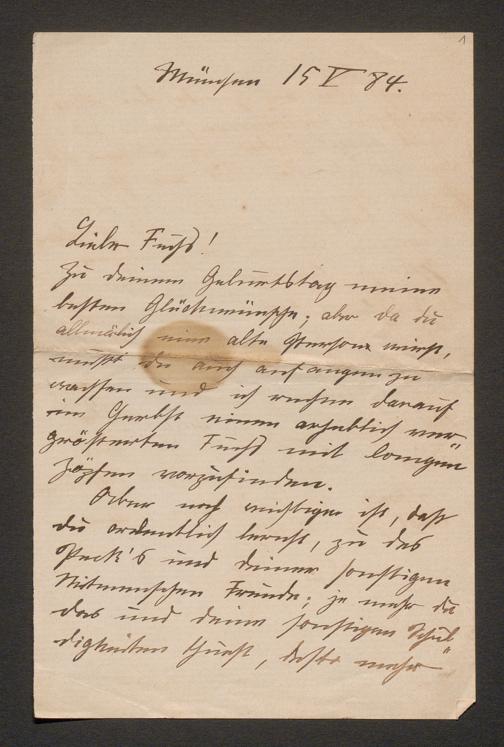 1
München 15 V 84.
Lieber Fuchs!
Zu deinem Geburtstag meine
besten Glückwünsche; aber da du
allmälich eine alte Person wirst,
musst du auch anfangen zu
wachsen und ich rechne darauf
im Herbst einen erheblich ver-
größerten Fuchs mit langen
Zöpfen vorzufinden.
Aber noch wichtiger ist, daß
du ordentlich lernst, zu des
und deiner sonstigen
Mitmenschen Freude; je mehr du
das und deine sonstigen Schul-
digkeiten thust, desto mehr